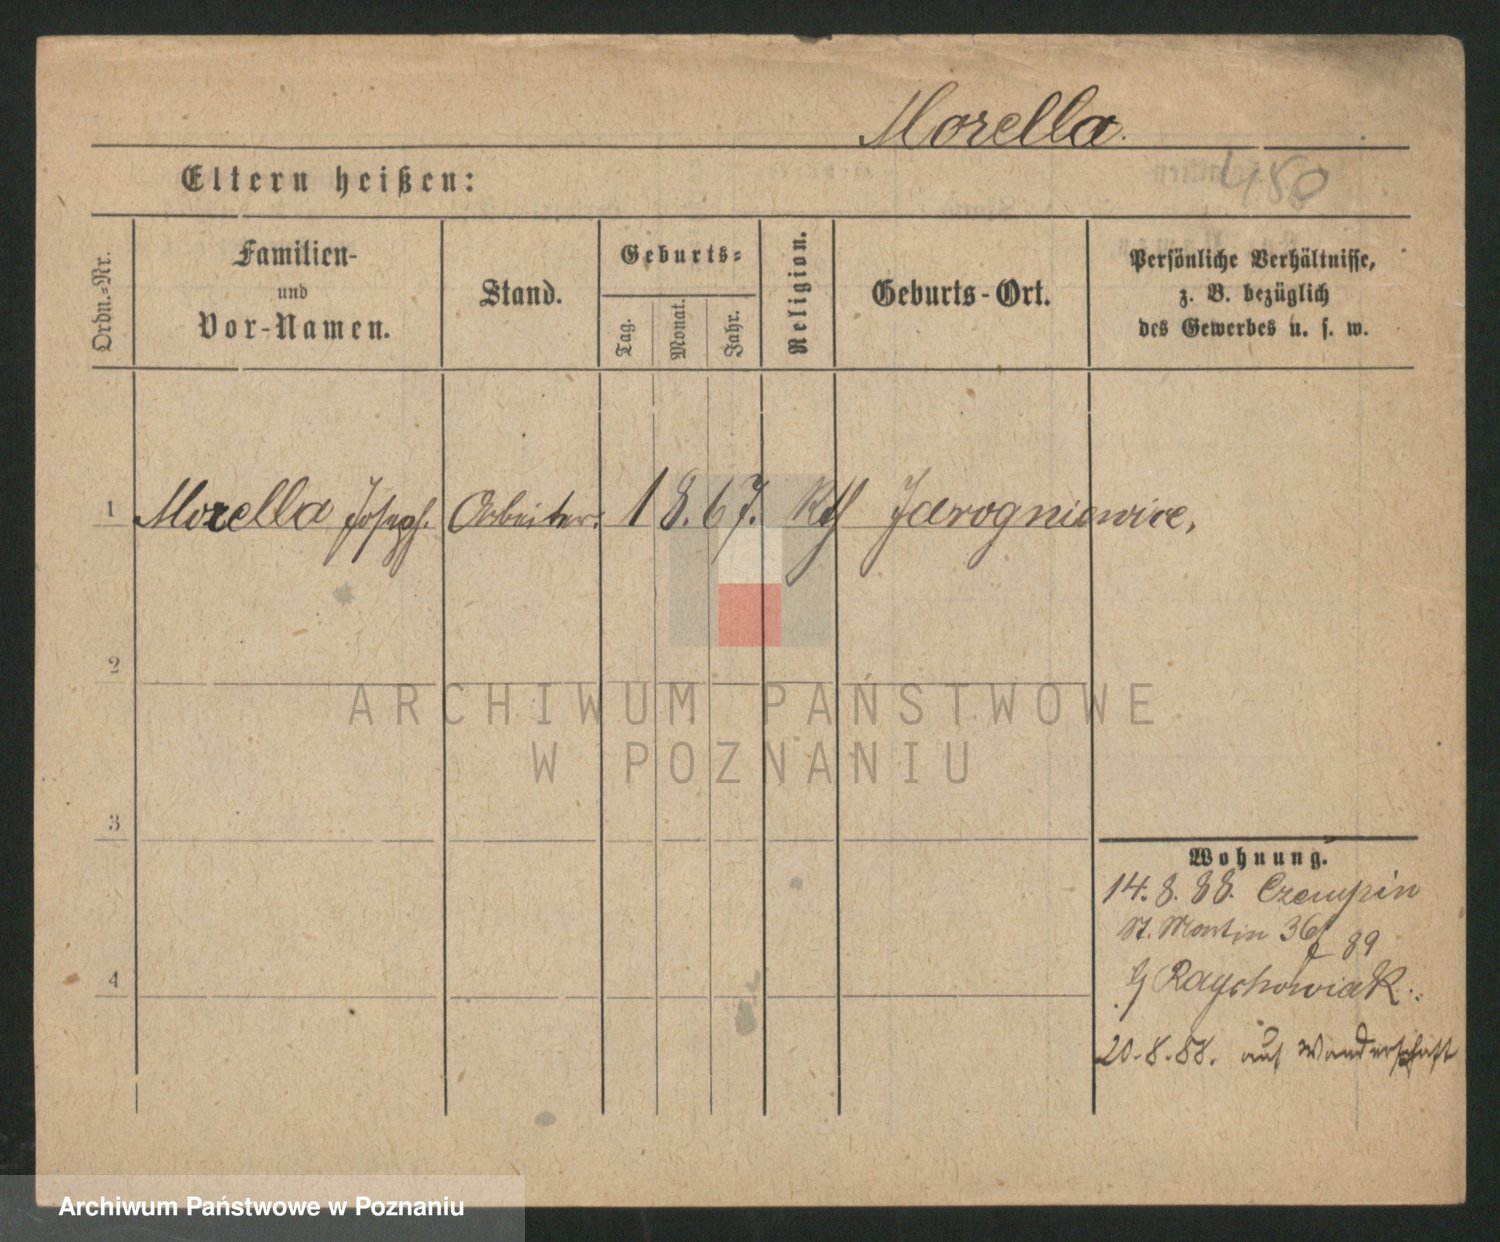 Morella.
Eltern heißen:
450
Ordn.-Nr.
Familien-
und
Vor-Namen.
Stand.
Geburts-
Tag.
Monat.
Jahr.
Religion.
Geburts-Ort.
Persönliche Verhältnisse,
z. B. bezüglich
des Gewerbes u. s. w.
1 Morella Joseph. Arbeiter. 18.67. Kth Jarogniewice,
2
3
4
ARCHIWUM PAŃSTWOWE
W POZNANIU
Wohnung.
14. 8. 88. Czempin
St. Martin 36
89
20.8.88. auf Wanderschaft
Archiwum Państwowe w Poznaniu